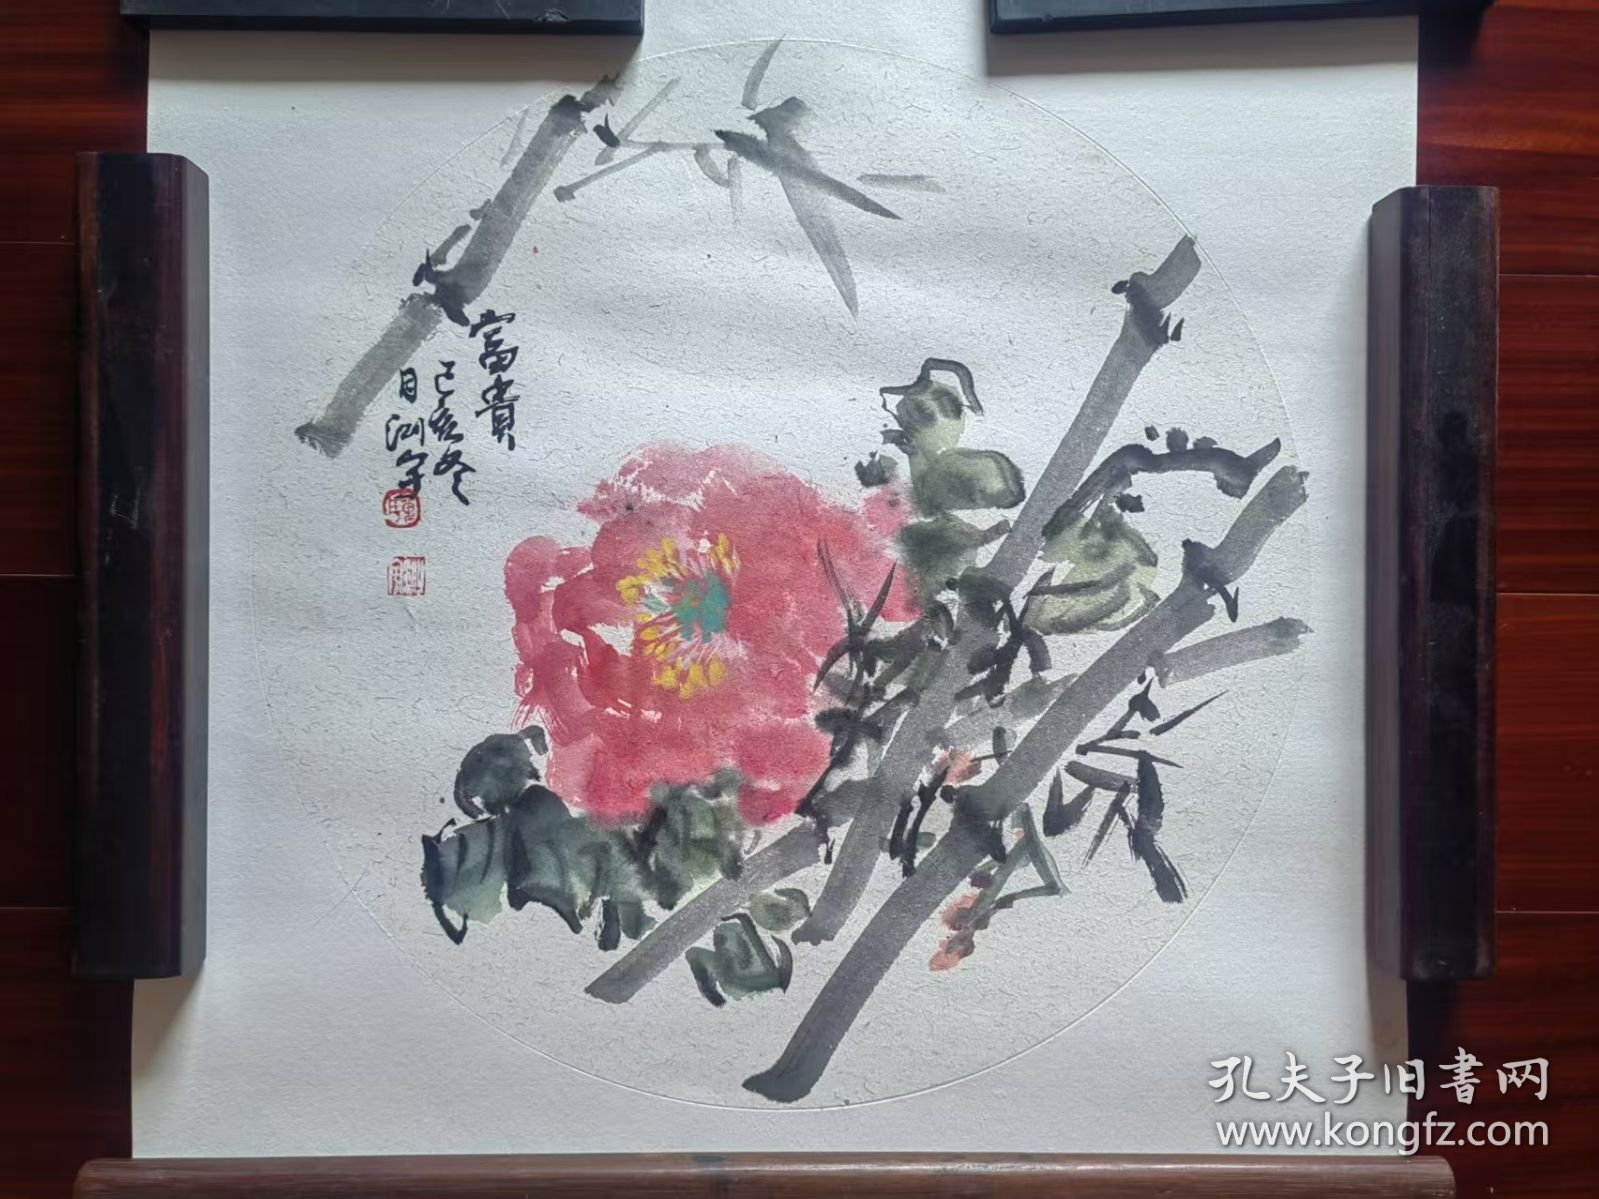 富貴
己亥冬
月洲写
孔夫子旧書网
www.kongfz.com